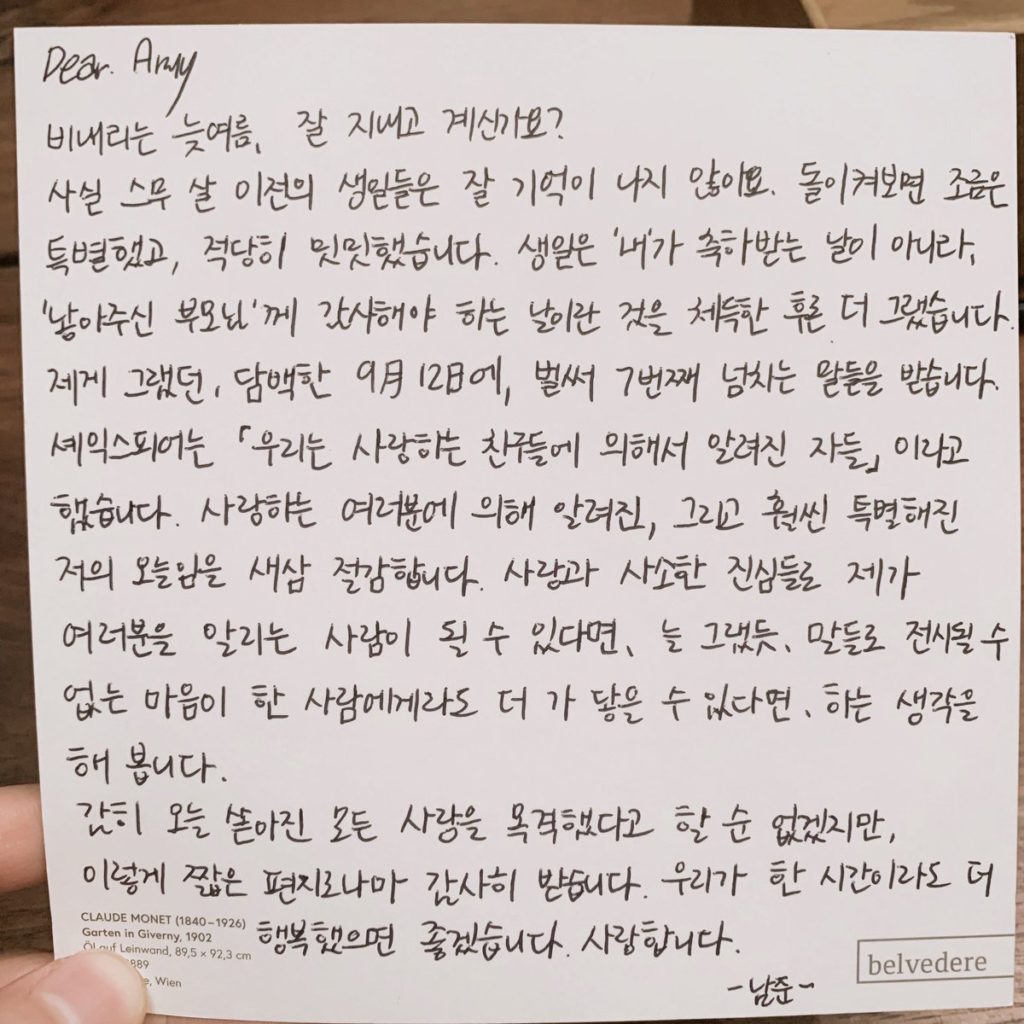 Dear. Army
비내리는 늦여름, 잘 지내고 계신가요?
사실 스무 살 이전의 생일들은 잘 기억이 나지 않아요. 돌이켜보면 조금은
특별했고, 적당히 밋밋했습니다. 생일은 '내'가 축하받는 날이 아니라,
'낳아주신 부모님'께 감사해야 하는 날이란 것을 체득한 후론 더 그랬습니다.
제게 그랬던, 담백한 9月 12日에, 벌써 7번째 넘치는 말들을 받습니다.
셰익스피어는 「우리는 사랑하는 친구들에 의해서 알려진 자들」 이라고
했습니다. 사랑하는 여러분에 의해 알려진, 그리고 훨씬 특별해진
저의 오늘임을 새삼 절감합니다. 사랑과 사소한 진심들로 제가
여러분을 알리는 사람이 될 수 있다면, 늘 그랬듯, 말들로 전시될 수
없는 마음이 한 사람에게라도 더 가 닿을 수 있다면, 하는 생각을
해 봅니다.
감히 오늘 쏟아진 모든 사랑을 목격했다고 할 순 없겠지만,
이렇게 짧은 편지로나마 감사히 받습니다. 우리가 한 시간이라도 더
행복했으면 좋겠습니다. 사랑합니다.
-남준-
CLAUDE MONET (1840–1926)
Garten in Giverny, 1902
Öl auf Leinwand, 89,5 x 92,3 cm
889
Wien
belvedere